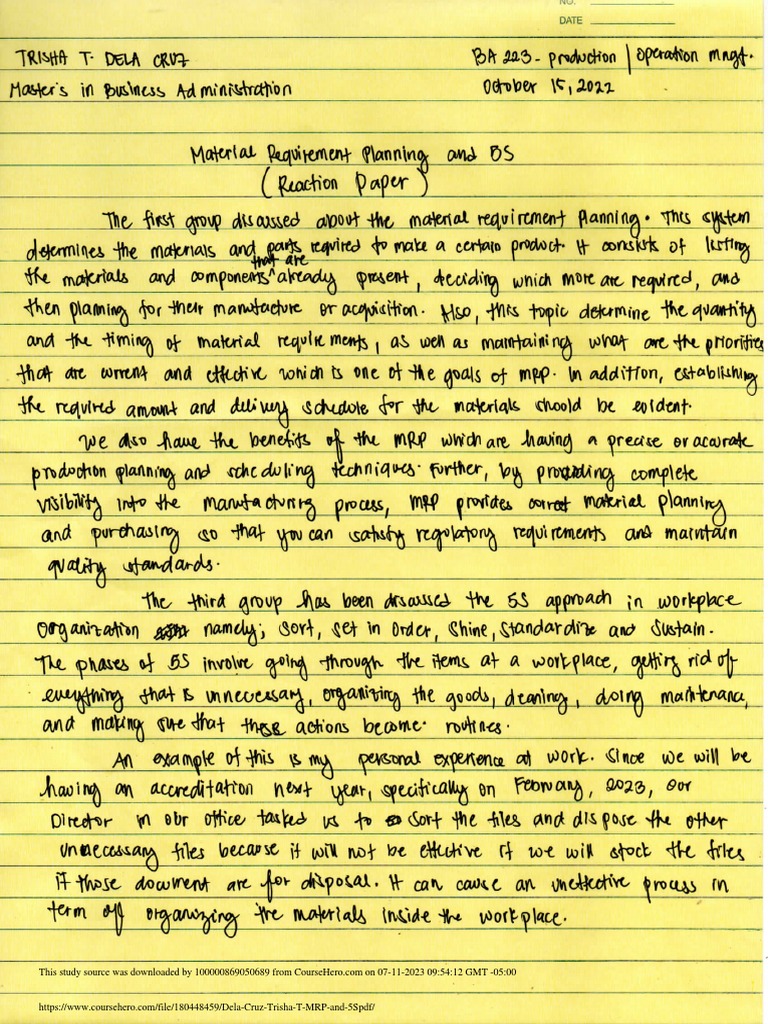 NO.
DATE
TRISHA T. DELA CRUZ BA 223 - production | operation mngt.
Master's in Business Administration October 15, 2022
Material Requirement Planning and 5S
(Reaction Paper)
The first group discussed about the material requirement planning. This system
determines the materials and parts required to make a certain product. It consists of listing
the materials and components ^that are already present, deciding which more are required, and
then planning for their manufacture or acquisition. Also, this topic determine the quantity
and the timing of material requirements, as well as maintaining what are the priorities
that are current and effective which is one of the goals of MRP. In addition, establishing
the required amount and delivery schedule for the materials should be evident.
We also have the benefits of the MRP which are having a precise or accurate
production planning and scheduling techniques. Further, by providing complete
visibility into the manufacturing process, MRP provides correct material planning
and purchasing so that you can satisfy regulatory requirements and maintain
quality standards.
The third group has been discussed the 5S approach in workplace
Organization namely; Sort, Set in Order, Shine, Standardize and Sustain.
The phases of 5S involve going through the items at a workplace, getting rid of
everything that is unnecessary, organizing the goods, cleaning, doing maintenance,
and making sure that these actions become routines.
An example of this is my personal experience at work. Since we will be
having an accreditation next year, specifically on February, 2023, our
Director in our office tasked us to sort the files and dispose the other
unnecessary files because it will not be effective if we will stock the files
if those document are for disposal. It can cause an uneffective process in
term off organizing the materials inside the workplace.
This study source was downloaded by 100000869050689 from CourseHero.com on 07-11-2023 09:54:12 GMT -05:00
https://www.coursehero.com/file/180448459/Dela-Cruz-Trisha-T-MRP-and-5Spdf/